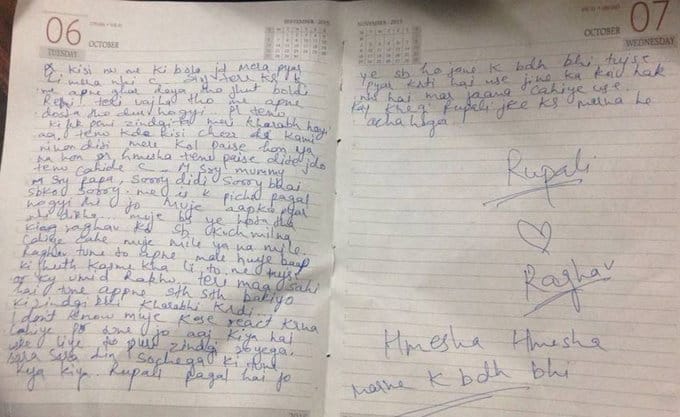 06
TUESDAY
OCTOBER
SEPTEMBER - 2015
pr kisi nu me ki bola jd mera pyar
hi mera nhi c
me apne ghar
tho jhut boldi
teri vajha tho me apne
dosta tho dur hogyi
pr teno
ki frk peni zindai to meri kharabh hoyi
teno kde kisi cheez di kami
ni hon diti mere kol paise hon ya
na hon pr hmesha teno paise dite jdo
teno cahide c M sry mummy
M sry papa, Sorry didi Sorry bhai
sbko Sorry. me is k picha pagal
hogyi thi jo muje aapka pyar
nhi dikha muje bs ye hota tha
raghav ko sb kuch milna
cahiye cahe muje mile ya na mile
Raghav tune to apne mare huye baap
ki jhuth kasme kha li to me tujse
or ky umid rakhu. teri maa sahi
hai tune apne sth sth bakiyo
ki zindgi bhi kharabh krdi
I dont know muje kese react krna
cahiye pr tune jo aaj kiya hai
uske liye tu puri zindgi royega.
sara sara din sochega ki tune
kya kiya Rupali pagal hai jo
07
WEDNESDAY
OCTOBER
NOVEMBER - 2015
ye sb ho jane k bdh bhi tujse
pyar krti hai use jine ka koi hak
nhi hai mar jaana cahiye use.
Rupali jee ks marna he
acha hoga
Rupali
♡
Raghav
Hmesha Hmesha
marne k bdh bhi